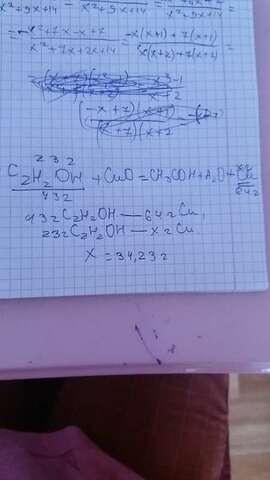 x²+9x+14
x²+9x+14
x²+9x+14
= -x²+7x-x+7 / x²+7x+2x+14 = -x(x+1)+7(x+1) / x(x+2)+7(x+2) =
x+2
(-x+7)(x+
+7)(x+2
23г xг
C₂H₂OH + CuO = CH₃COOH + H₂O + Cu
43г 64г
43г C₂H₂OH — 64г Cu,
23г C₂H₂OH — xг Cu
X = 34,23г